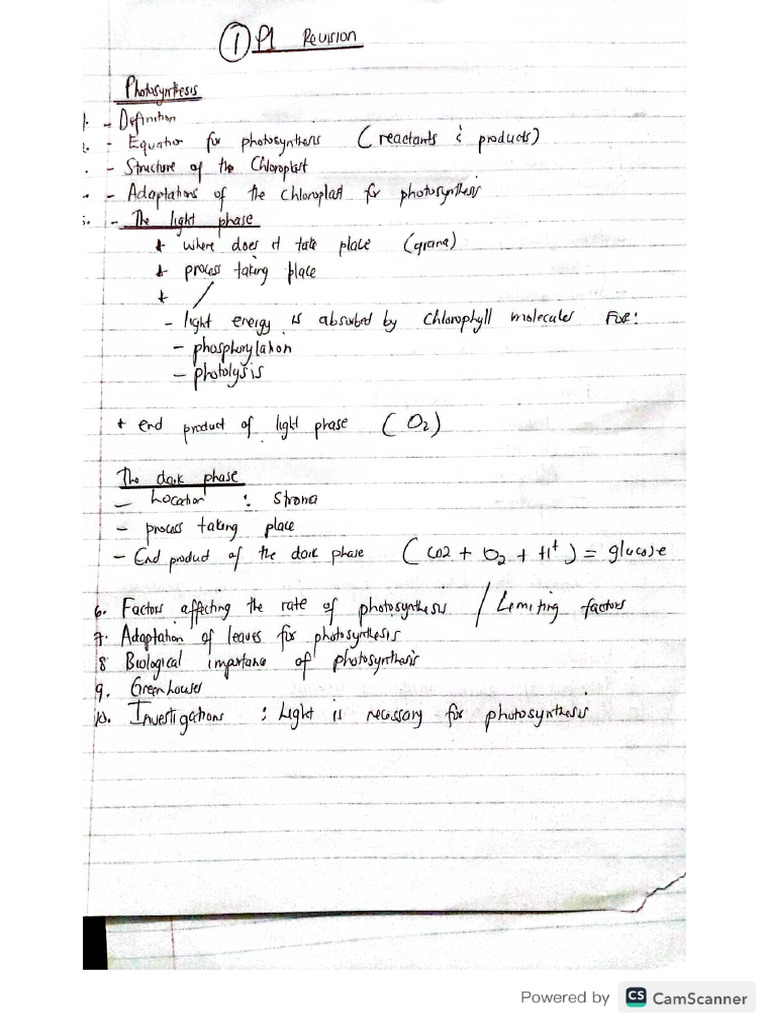 ① P1 Revision
Photosynthesis
1. - Definition
2. - Equation for photosynthesis (reactants & products)
. - Structure of the Chloroplast
- Adaptations of the chloroplast for photosynthesis
5. - The light phase
+ where does it take place (grana)
+ process taking place
+ /
- light energy is absorbed by chlorophyll molecules FOR:
- phosphorylation
- photolysis
+ end product of light phase (O2)
The dark phase
- Location : Stroma
- process taking place
- End product of the dark phase (CO2 + O2 + H+) = glucose
6. Factors affecting the rate of photosynthesis / Limiting factors
7. Adaptation of leaves for photosynthesis
8 Biological importance of photosynthesis
9. Greenhouses
10. Investigations : Light is necessary for photosynthesis
Powered by CS CamScanner